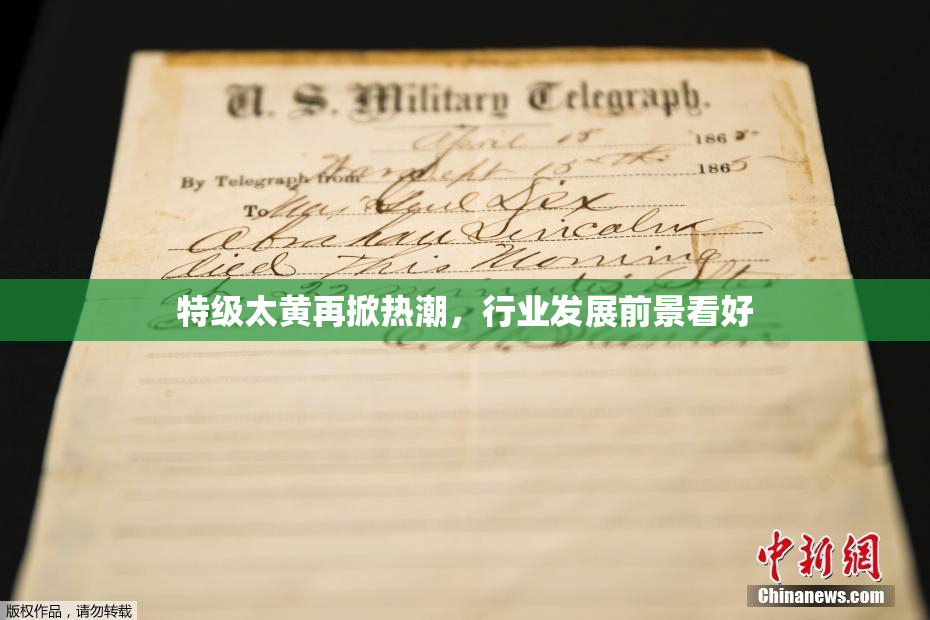 U. S. Military Telegraph.
April 15 1865
By Telegraph from War Dept 15th 1865
To Maj Genl Dix
Abraham Lincoln
died This Morning
at 22 minutes after
特级太黄再掀热潮，行业发展前景看好
中新网
Chinanews.com
版权作品，请勿转载